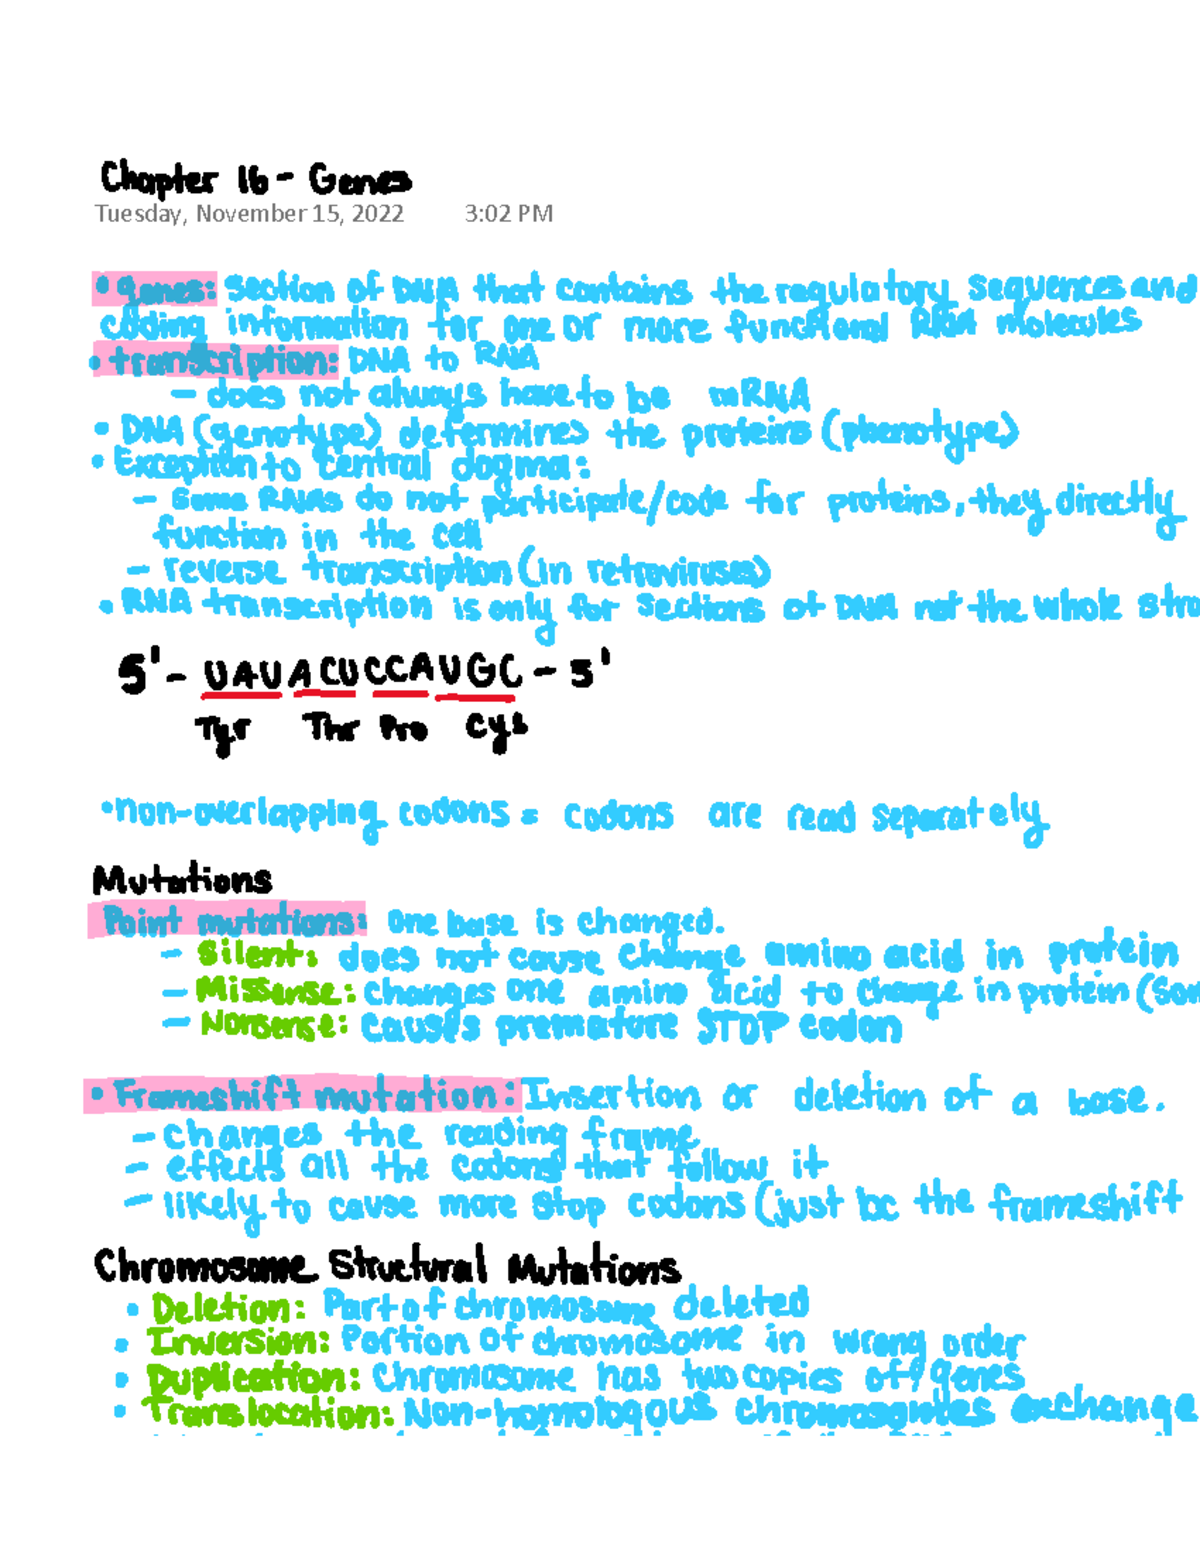 Chapter 16 - Genes
Tuesday, November 15, 2022 3:02 PM
• genes: section of DNA that contains the regulatory sequences and
coding information for one or more functional RNA molecules
• transcription: DNA to RNA
- does not always have to be mRNA
• DNA (genotype) determines the proteins (phenotype)
• Exception to central dogma:
- Some RNAs do not participate/code for proteins, they directly
function in the cell
- reverse transcription (in retroviruses)
• RNA transcription is only for sections of DNA not the whole stra
5'- UAUACUCCAUGC - 3'
Tyr Thr Pro Cys
• non-overlapping codons = codons are read separately
Mutations
Point mutations: one base is changed.
- Silent: does not cause change amino acid in protein
- Missense: changes one amino acid to change in protein (Som
- Nonsense: causes premature STOP codon
• Frameshift mutation: Insertion or deletion of a base.
- changes the reading frame
- effects all the codons that follow it
- likely to cause more stop codons (just bc the frameshift
Chromosome Structural Mutations
• Deletion: Part of chromosome deleted
• Inversion: Portion of chromosome in wrong order
• Duplication: Chromosome has two copies of genes
• Translocation: Non-homologous chromosomes exchange